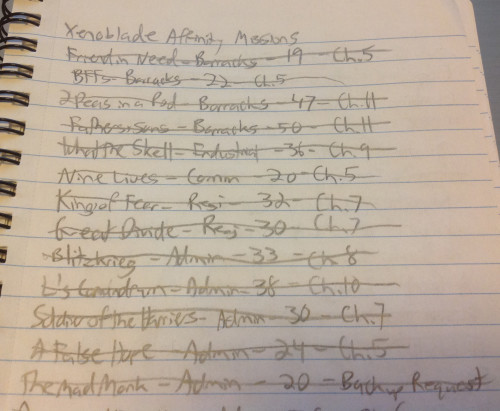 Xenoblade Affinity Missions
Friend in Need - Barracks - 19 - Ch.5
BFFs - Barracks - 22 - Ch.5
2 Peas in a Pod - Barracks - 47 - Ch.11
Fathers: Sons - Barracks - 50 - Ch.11
What the Skell - Industrial - 36 - Ch.9
Nine Lives - Comm - 20 - Ch.5
King of Fear - Resi - 32 - Ch.7
Great Divide - Resi - 30 - Ch.7
Blitzkrieg - Admin - 33 - Ch 8
L's Conundrum - Admin - 38 - Ch.10
Soldier of the Harriers - Admin - 30 - Ch.7
A False Hope - Admin - 24 - Ch.5
The Mad Monk - Admin - 20 - Backup Request